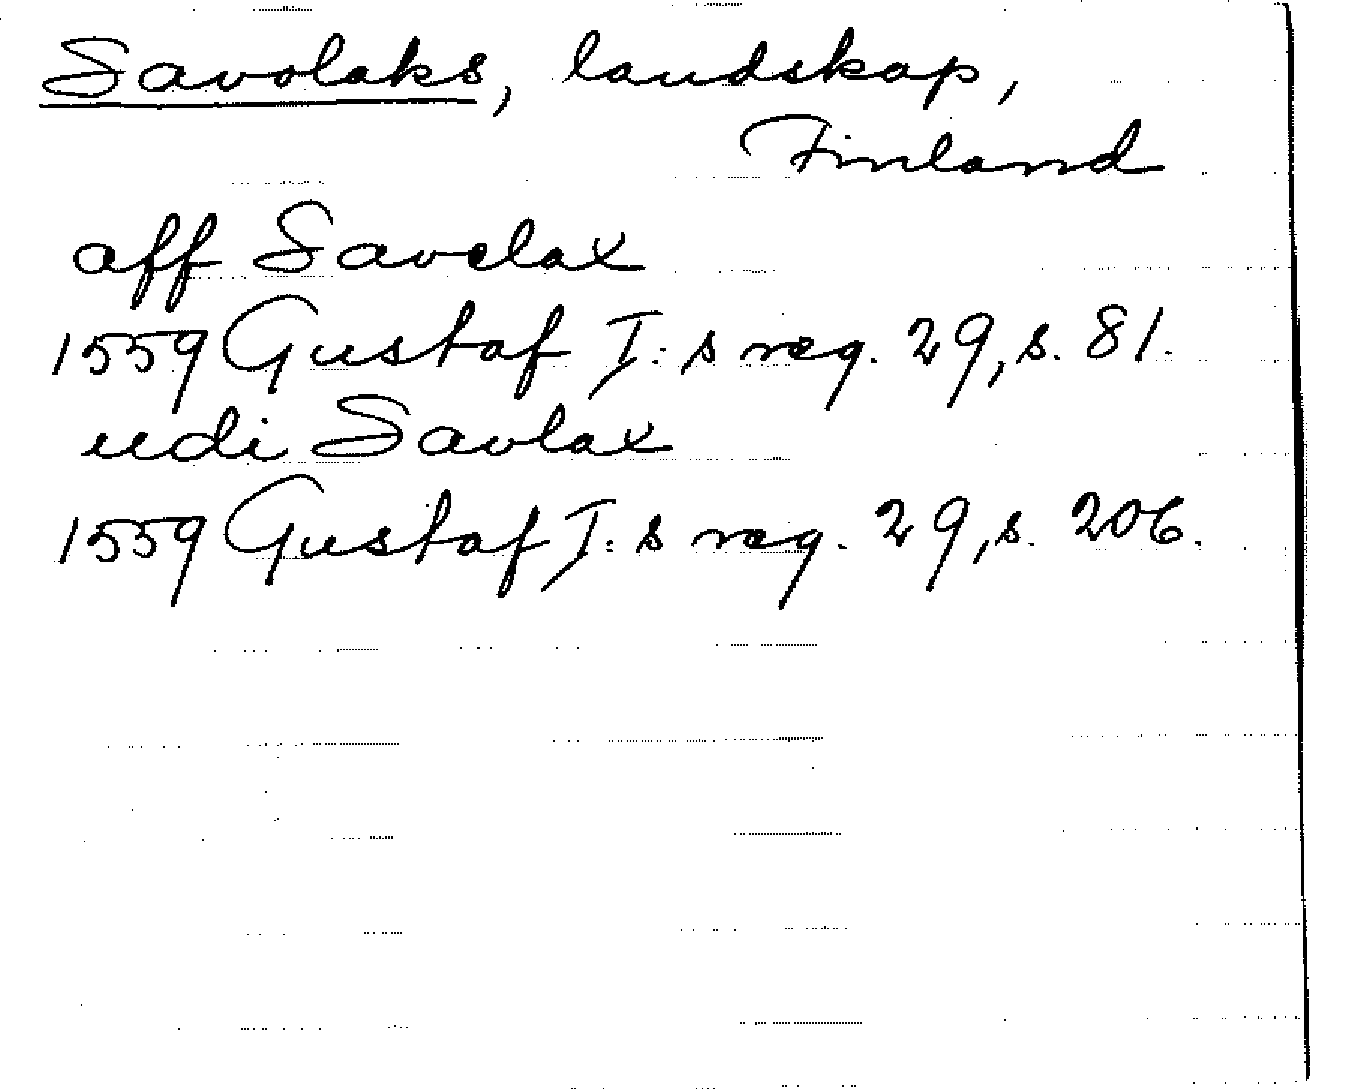 Savolaks, landskap,
Finland
aff Savelax
1559 Gustaf I:s reg. 29, s. 81.
udi Savlax
1559 Gustaf I:s reg. 29, s. 206.